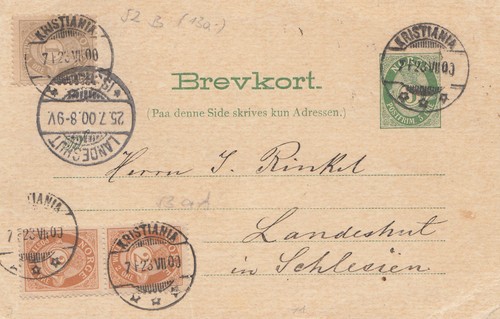 52 B (13a.)
KRISTIANIA
7 F 23 VII 00
KRISTIANIA
7 F 23 VII 00
NORGE
5
POSTFRIM
Brevkort.
(Paa denne Side skrives kun Adressen.)
25.7.00.8-9V.
LANDESHUT
Herrn J. Rinkel
Landeshut
in Schlesien
KRISTIANIA
7 F 23 VII 00
NORGE
KRISTIANIA
7 F 23 VII 00